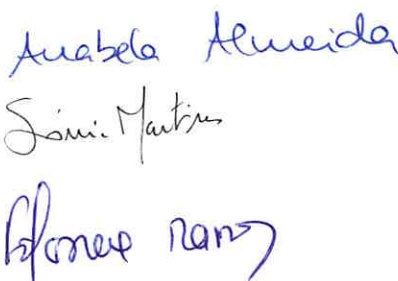 Anabela Almeida
Sónia Martins
Ramos